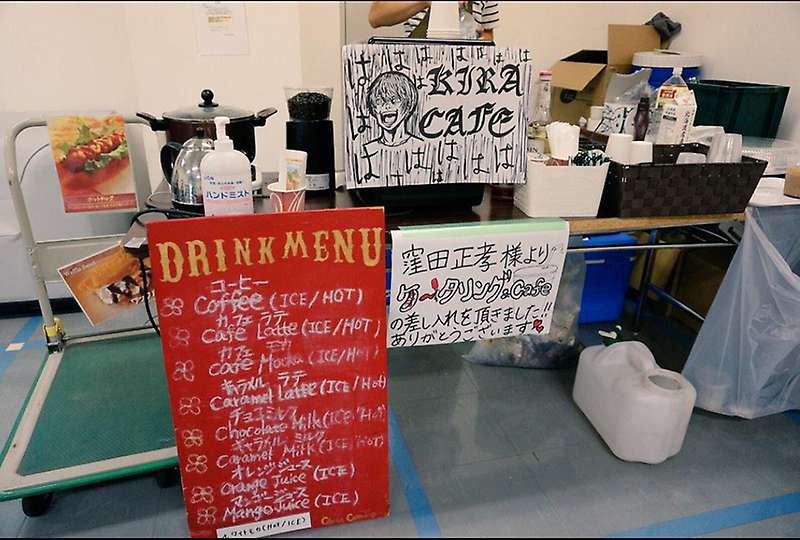 ホットドッグ
ハンドミスト
KIRA
CAFE
はははははははは
DRINK MENU
コーヒー
Coffee (ICE/HOT)
カフェ ラテ
Cafe Latte (ICE/HOT)
カフェ モカ
Cafe Mocha (ICE/HOT)
キャラメル ラテ
Caramel Latte (ICE/HOT)
チョコミルク
Chocolate Milk (ICE/HOT)
キャラメル ミルク
Caramel Milk (ICE/HOT)
オレンジジュース
Orange Juice (ICE)
マンゴージュース
Mango Juice (ICE)
ホワイトモカ(HOT/ICE)
窪田正孝様より
ケータリングCafe
の差し入れを頂きました!!
ありがとうございます